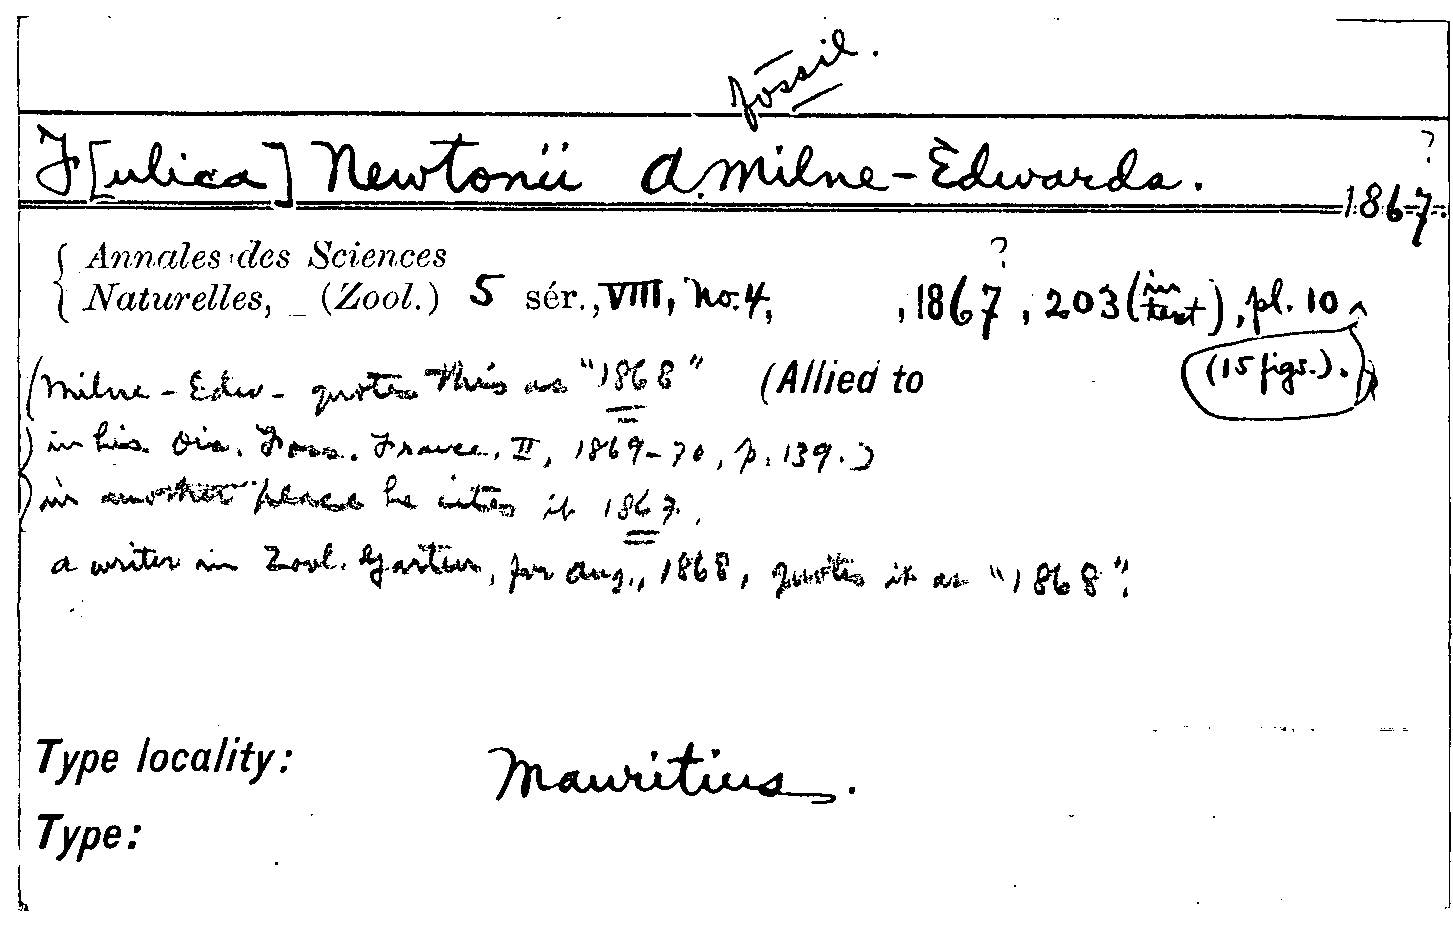 fossil.
F[ulica] Newtonii A. Milne-Edwards. 1867?
Annales des Sciences
Naturelles, (Zool.) 5 sér., VIII, No. 4, , 1867?, 203 (in text), pl. 10
(15 figs.).
(Milne-Edw- quotes this as "1868" (Allied to
in his Ois. Foss. France, II, 1869-70, p. 139.)
in another place he cites it 1867.
a writer in Zool. Garten, for Aug., 1868, quotes it as "1868".
Type locality: Mauritius.
Type: